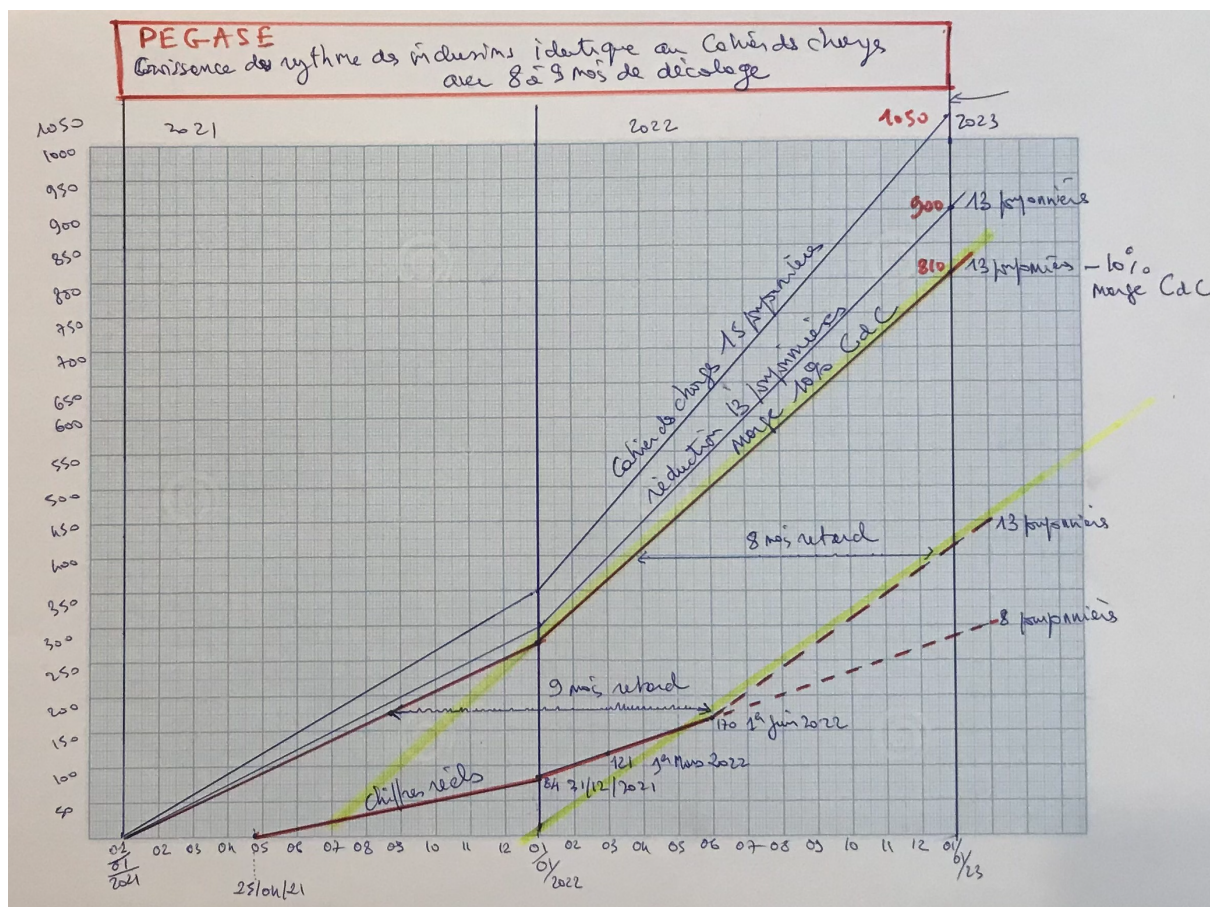 PEGASE
Croissence du rythme des inclusions identique au Cahier ds chargs
avec 8 à 9 mois de décalage
2021
2022
1050
2023
1050
1000
950
900
850
800
750
700
650
600
550
500
450
400
350
300
250
200
150
100
50
900
13 pouponnières
810
13 pouponnières - 10%
marge CdC
Cahier ds chargs 15 pouponnières
réduction 13 pouponnières
marge 10% CdC
8 mois retard
13 pouponnières
8 pouponnières
9 mois retard
170 1er Juin 2022
121 1er Mars 2022
84 31/12/2021
chiffres réels
01 2021
02 03 04 05 06 07 08 09 10 11 12 01/01/2022
02 03 04 05 06 07 08 09 10 11 12 01/01/23